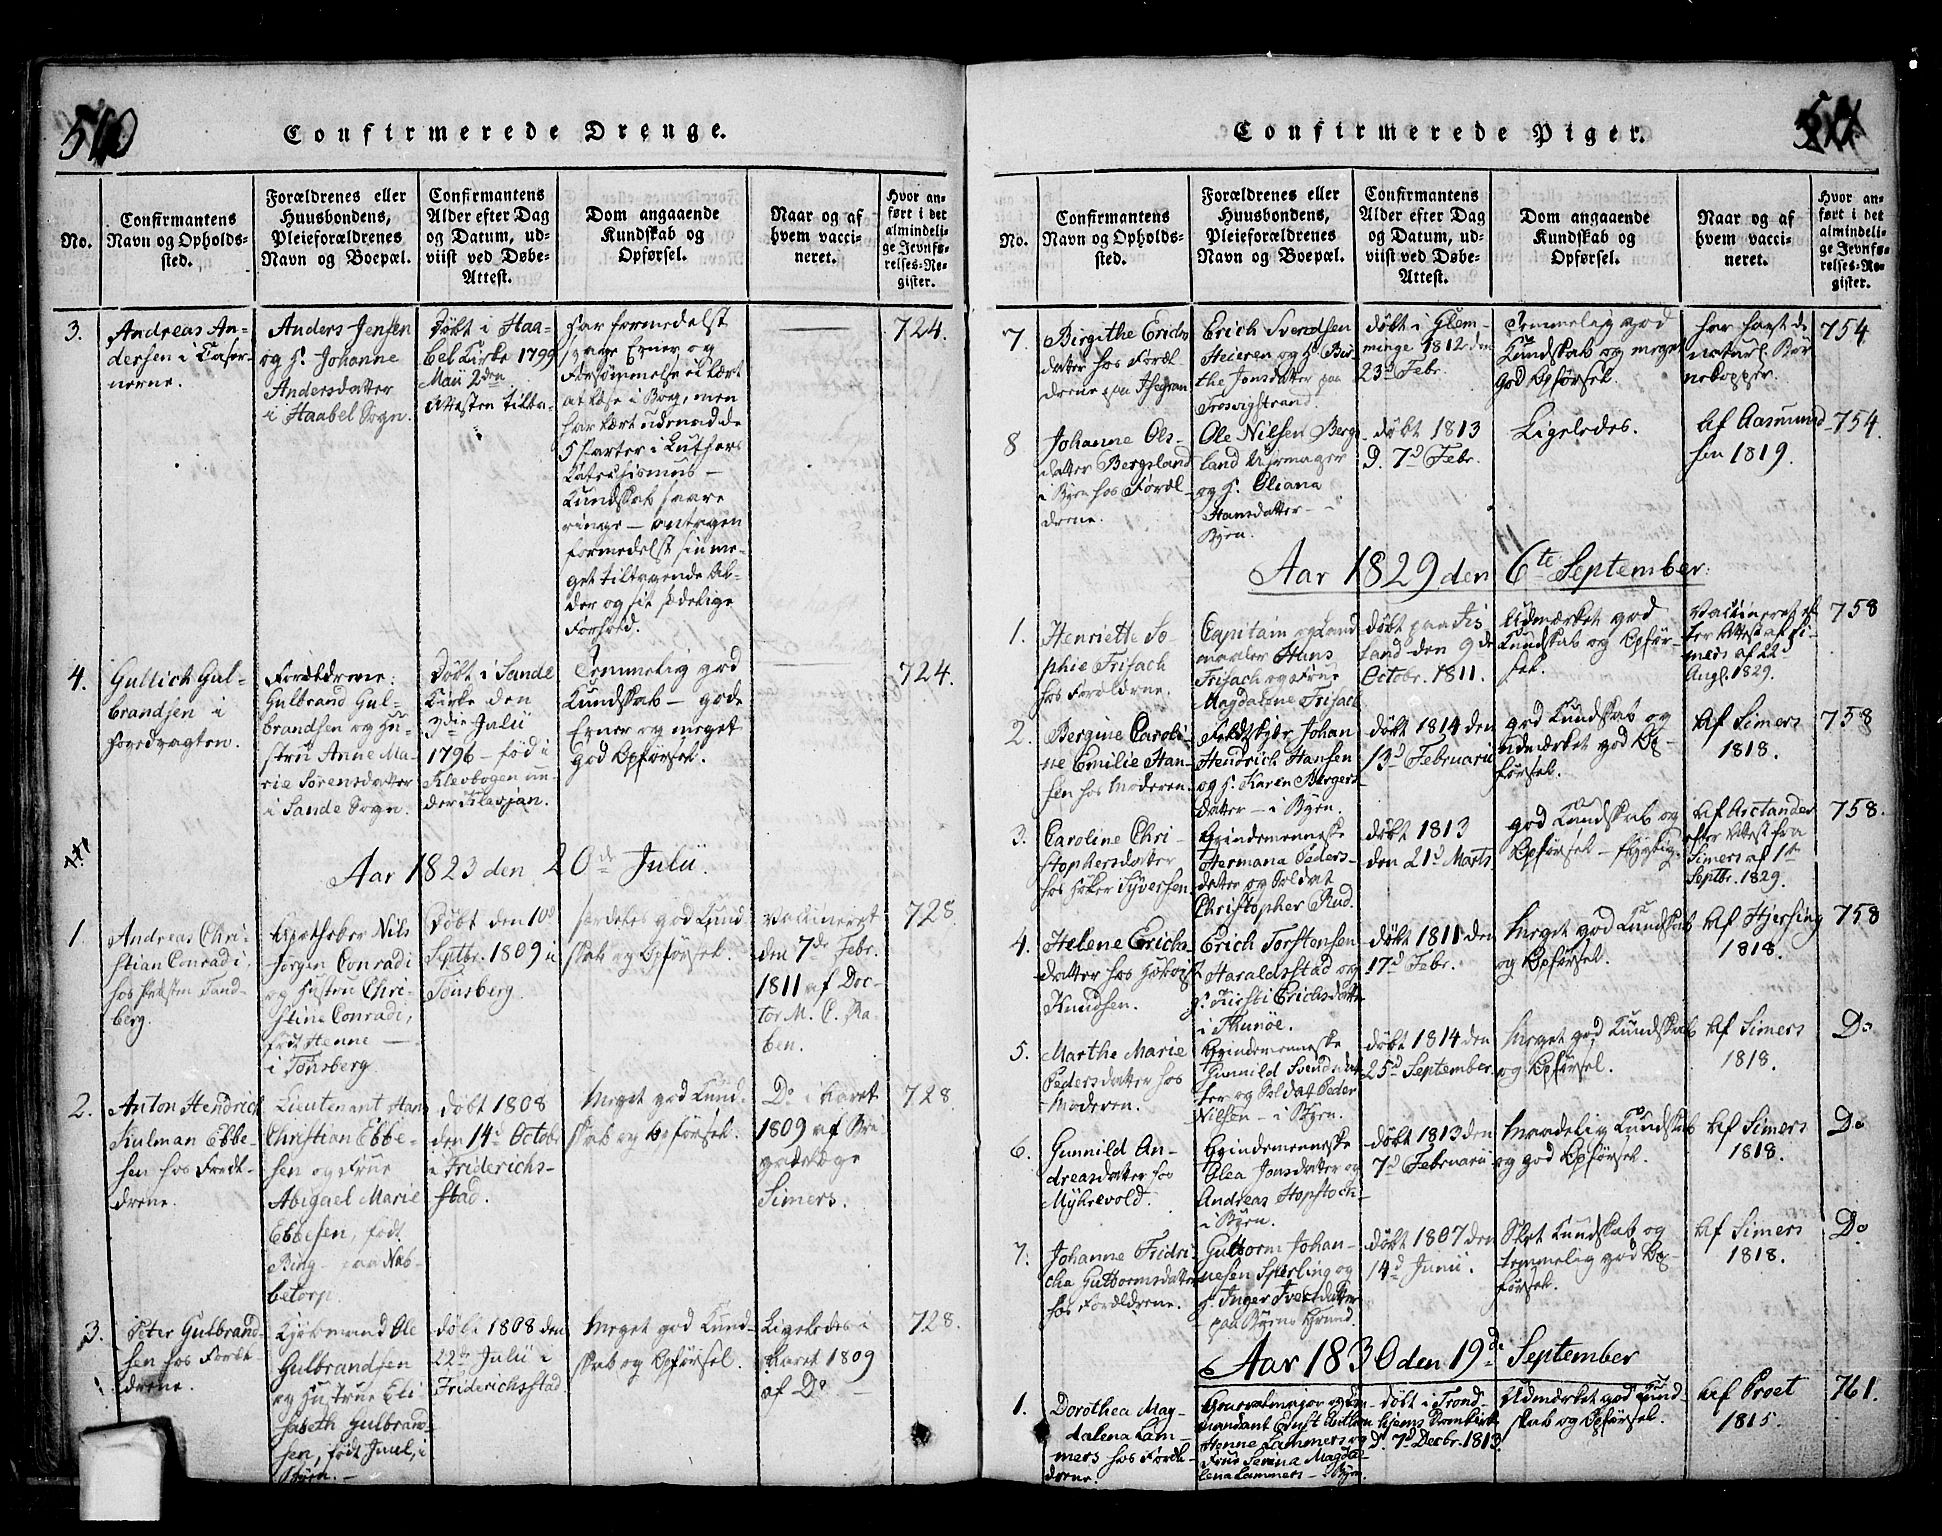 510
Confirmerede Drenge.
No.
Confirmantens
Navn og Opholds-
sted.
Forældrenes eller
Huusbondens,
Pleieforældrenes
Navn og Boepæl.
Confirmantens
Alder efter Dag
og Datum, ud-
viist ved Døbe-
Attest.
Dom angaaende
Kundskab og
Opførsel.
Naar og af
hvem vacci-
neret.
Hvor an-
ført i det
almindeli-
ge Jevnfø-
relses-Re-
gister.
3.
Andreas An-
dersen i Caser-
nerne.
Anders Jensen
og H. Johanne
Andersdatter
i Haabel Sogn.
Døbt i Haa-
bel Kirke 1799
Maii 2den
Attesten tilla-
har formedelst
svage Evner og
Forsømmelse ei lært
at læse i Bog, men
har lært udenad de
5 Parter i Luthers
Katechismus -
Kundskab saare
ringe - antagen
formedelst sin me-
get tiltagende Al-
der og sit sædelige
Forhold.
724.
4.
Gullich Gul-
brandsen i
Hovedvagten.
Forældrene:
Gulbrand Gul-
brandsen og Hu-
stru Anne Ma-
rie Sørensdatter
i Sande Sogn.
Døbt i Sande
Kirke den
3die Julii
1796 - fød i
Klevbogen un-
der Klevjan.
Temmelig god
Kundskab - gode
Evner og meget
god Opførsel.
724.
Aar 1823 den 20de Julii.
1.
Andreas Chri-
stian Conradi,
hos Tand-
berg.
Apotheker Nils
Jørgen Conradi
og Hustru Chri-
stine Conradi,
født Henne -
i Tønsberg.
Døbt den 10d
Septbr. 1809 i
Tønsberg.
særdeles god Kund-
skab og Opførsel.
Vaccineret
den 7de Febr.
1811 af Doc-
tor M. C. Ra-
ben.
728.
2.
Anton Hendrich
Kulman Ebbe-
sen hos Foræl-
drene.
Lieutenant Hans
Christian Ebbe-
sen og Frue
Abigael Marie
Ebbesen, født
Bing - paa Nab-
betorp.
døbt 1808
den 14d Octobr
i Friderichs-
stad.
Meget god Kund-
skab og Opførsel.
Do i Aaret
1809 af Bri-
gadelæge
Simers.
728.
3.
Peter Gulbrand-
sen hos Foræl-
drene.
Kjøbmand Ole
Gulbrandsen
og Hustrue Eli
sabeth Gulbrand-
sen, født Juul, i
Byen. -
døbt 1808 den
22de Julii i
Friderichsstad
Meget god Kund-
skab og Opførsel.
Ligeledes i
Aaret 1809
af Do -
728.
Confirmerede Piger.
No.
Confirmantens
Navn og Opholds-
sted.
Forældrenes eller
Huusbondens,
Pleieforældrenes
Navn og Boepæl.
Confirmantens
Alder efter Dag
og Datum, ud-
viist ved Døbe-
Attest.
Dom angaaende
Kundskab og
Opførsel.
Naar og af
hvem vacci-
neret.
Hvor an-
ført i det
almindeli-
ge Jevnfø-
relses-Re-
gister.
7.
Birgithe Erichs
datter hos Foræl-
drene paa Isegran
Erich Svendsen
Heieren og H. Bir-
the Jonsdatter paa
Tresvigstrand.
døbt i Glem-
minge 1812 den
23d Febr.
Temmelig god
Kundskab og meget
god Opførsel.
har havt de
naturl. Bør
nekopper.
754
8
Johanne Ols-
datter Bergsland
i Byen hos Foræl-
drene.
Ole Nilsen Bergs-
land Uhrmager
og H. Oliana
Hansdatter -
Byen.
døbt 1813
d. 7d Febr.
Ligeledes.
Af Aasmund-
sen 1819.
754.
Aar 1829 den 6te September.
1.
Henriette So-
phie Trifach
hos Forældrene.
Capitain og Land
maaler Hans
Trifach og Frue
Magdalene Trifach
døbt paa Jis
land den 9de
Octobr. 1811.
Udmærket god
Kundskab og Opfør-
sel.
Vaccineret ef
ter Attest af Si-
mers af 22d
Augl. 1829.
758
2.
Bergine Caroli-
ne Emilie Han-
sen hos Moderen.
Feldskjær Johan
Hendrich Hansen
og H. Karen Bergers-
datter - i Byen.
døbt 1814 den
13d Februarii
god Kundskab og
udmærket god Op-
førsel.
Af Simers
1818.
758
3.
Caroline Chri-
stophersdatter
hos Høker Syversen
Qvindemenneske
Hermana Peders-
datter og Soldat
Christopher Rud.
døbt 1813
den 21d Marts
god Kundskab og
Opførsel - flygtig.
Af Arctander
efter Attest fra
Simers af 1te
Septbr. 1829.
758.
4.
Helene Erichs-
datter hos
Knudsen.
Erich Torstensen
Haraldsstad og
H. Kirsti Erichsdatter
i Thunøe.
døbt 1811 den
17d Febr.
Meget god Kundskab
og Opførsel.
Af Hjersing
1818.
758
5.
Marthe Marie
Pedersdatter hos
Moderen.
Qvindemenneske
Gunnild Svendsdat-
ter og Soldat Peder
Nilsen - i Byen.
døbt 1814 den
25d September.
Meget god Kundskab
og Opførsel.
Af Simers
1818.
Do
6.
Gunnild An-
dreasdatter hos
Myhrevold.
Qvindemenneske
Olea Jonsdatter og
Andreas Hopstock-
i Byen.
døbt 1813 den
7d Februarii
Maadelig Kundskab
og god Opførsel.
Af Simers
1818.
Do
7.
Johanne Fridri-
cha Guttormsdatter
hos Forældrene.
Guttorm Johan-
nesen Sperling og
H. Inger Iversdatter
paa Byens Grund.
døbt 1807 den
14d Junii.
Slet Kundskab og
temmelig god Op-
førsel.
Af Simers
1818.
Do
Aar 1830 den 19de September
1.
Dorothea Mag-
dalena Lam-
mers hos Foræl-
drene.
Generalmajor og Com-
mandant Ernst Anton
Henne Lammers og
Frue Serina Magda-
lena Lammers - Byen.
døbt i Trond-
hjems Domkirke
d. 7d Decbr. 1813.
Udmærket god Kund-
skab og Opførsel.
Af Proet
1815.
761.